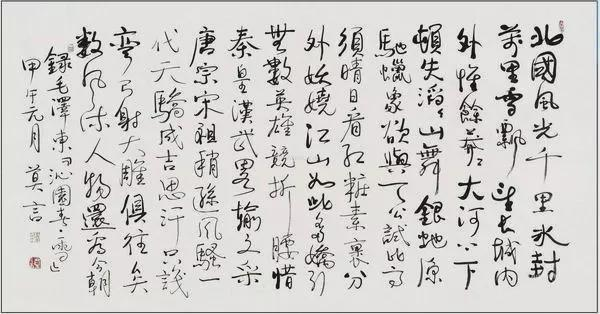 北國風光千里冰封
萬里雪飄望長城内
外惟餘莽々大河上下
頓失滔々山舞銀蛇原
馳蠟象欲與天公試比高
須晴日看紅粧素裹分
外妖嬈江山如此多嬌引
無數英雄競折腰惜
秦皇漢武略輸文采
唐宗宋祖稍遜風騷一
代天驕成吉思汗只識
彎弓射大雕俱往矣
數風流人物還看今朝
錄毛澤東詞「沁園春·雪」
甲午元月 莫言